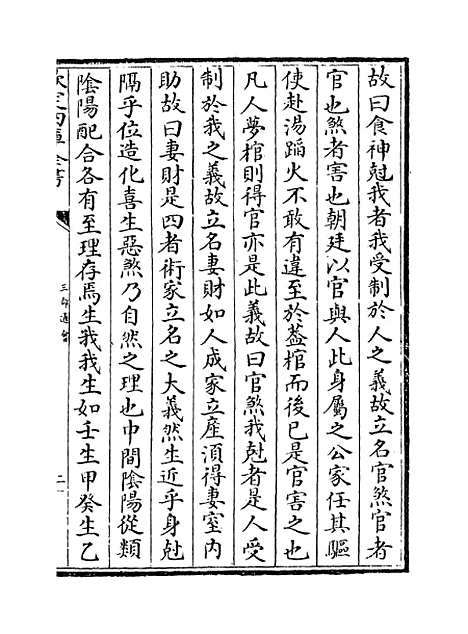 故曰食神尅我者我受制於人之義故立名官煞官者
官也煞者害也朝廷以官與人此身屬之公家任其驅
使赴湯蹈火不敢有違至於葢棺而後已是官害之也
凡人夢棺則得官亦是此義故曰官煞我尅者是人受
制於我之義故立名妻財如人成家立産湏得妻室内
助故曰妻財是四者術家立名之大義然生近乎身尅
隔乎位造化喜生惡煞乃自然之理也中間隂陽從類
隂陽配合各有至理存焉生我我生如壬生甲癸生乙
欽定四庫全書
三命通㑹